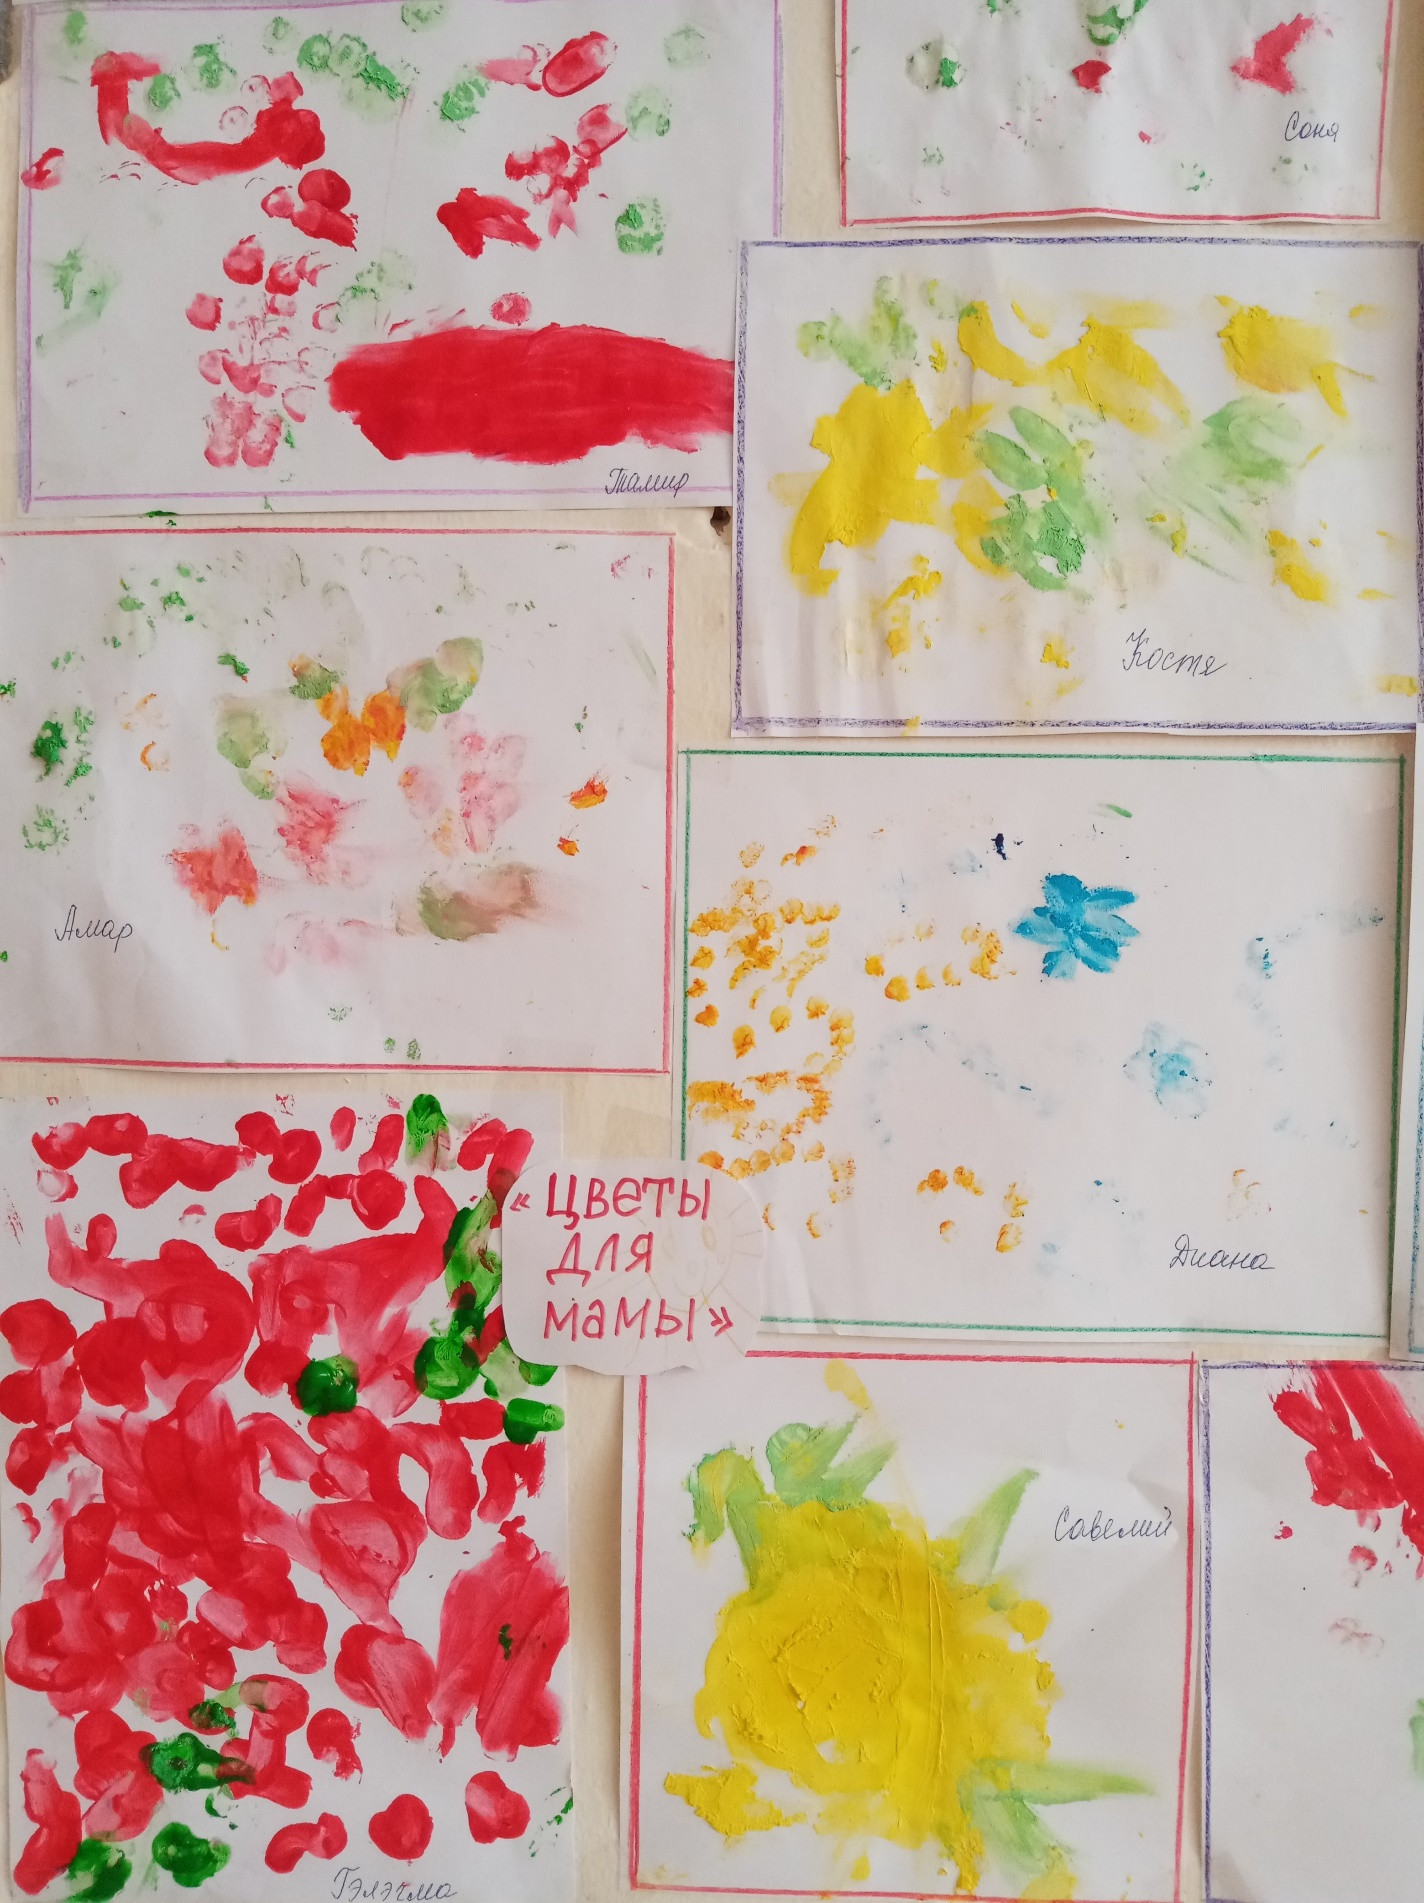 Соня
Тамир
Костя
Амар
«ЦВЕТЫ
ДЛЯ
МАМЫ»
Диана
Савелий
Гэлэгма